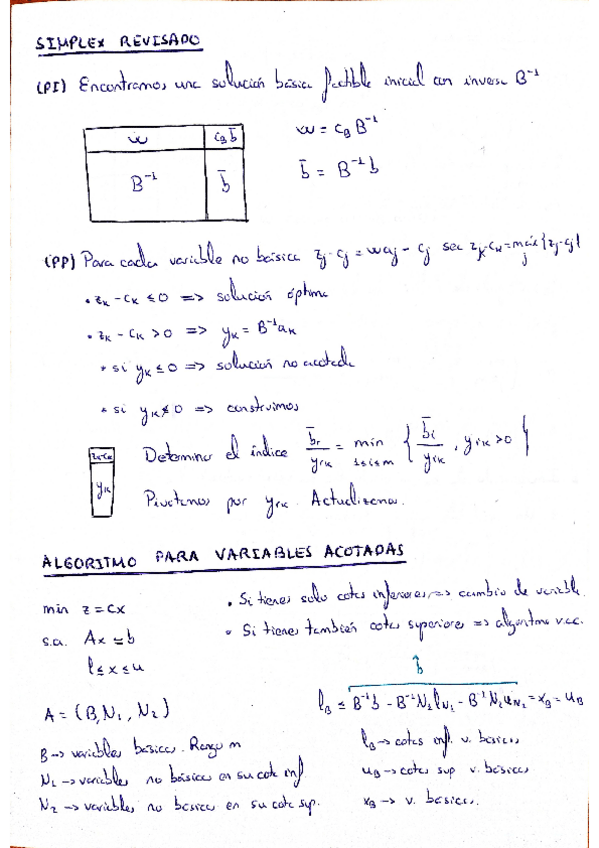 SIMPLEX REVISADO
(PI) Encontramos una solución básica factible inicial con inversa B⁻¹
w c_B b̄ w = c_B B⁻¹
B⁻¹ b̄ b̄ = B⁻¹b
(PP) Para cada variable no básica z_j - c_j = wa_j - c_j sea z_k - c_k = máx_j {z_j - c_j}
• z_k - c_k ≤ 0 => solución óptima
• z_k - c_k > 0 => y_k = B⁻¹a_k
* si y_k ≤ 0 => solución no acotada
* si y_k ≰ 0 => construimos
z_k-c_k Determinar el índice b̄_r / y_rk = mín 1≤i≤m { b̄_i / y_ik , y_ik > 0 }
y_k Pivotamos por y_rk. Actualizamos.
ALGORITMO PARA VARIABLES ACOTADAS
min z = cx • Si tienes solo cotas inferiores => cambio de variable.
s.a. Ax = b • Si tienes también cotas superiores => algoritmo v.cc.
l ≤ x ≤ u b̂
A = (B, N₁, N₂) l_B ≤ B⁻¹b - B⁻¹N₁l_N₁ - B⁻¹N₂u_N₂ = x_B = u_B
B -> variables básicas. Rango m l_B -> cotas inf. v. básicas
N₁ -> variables no básicas en su cota inf. u_B -> cotas sup v. básicas
N₂ -> variables no básicas en su cota sup. x_B -> v. básicas.